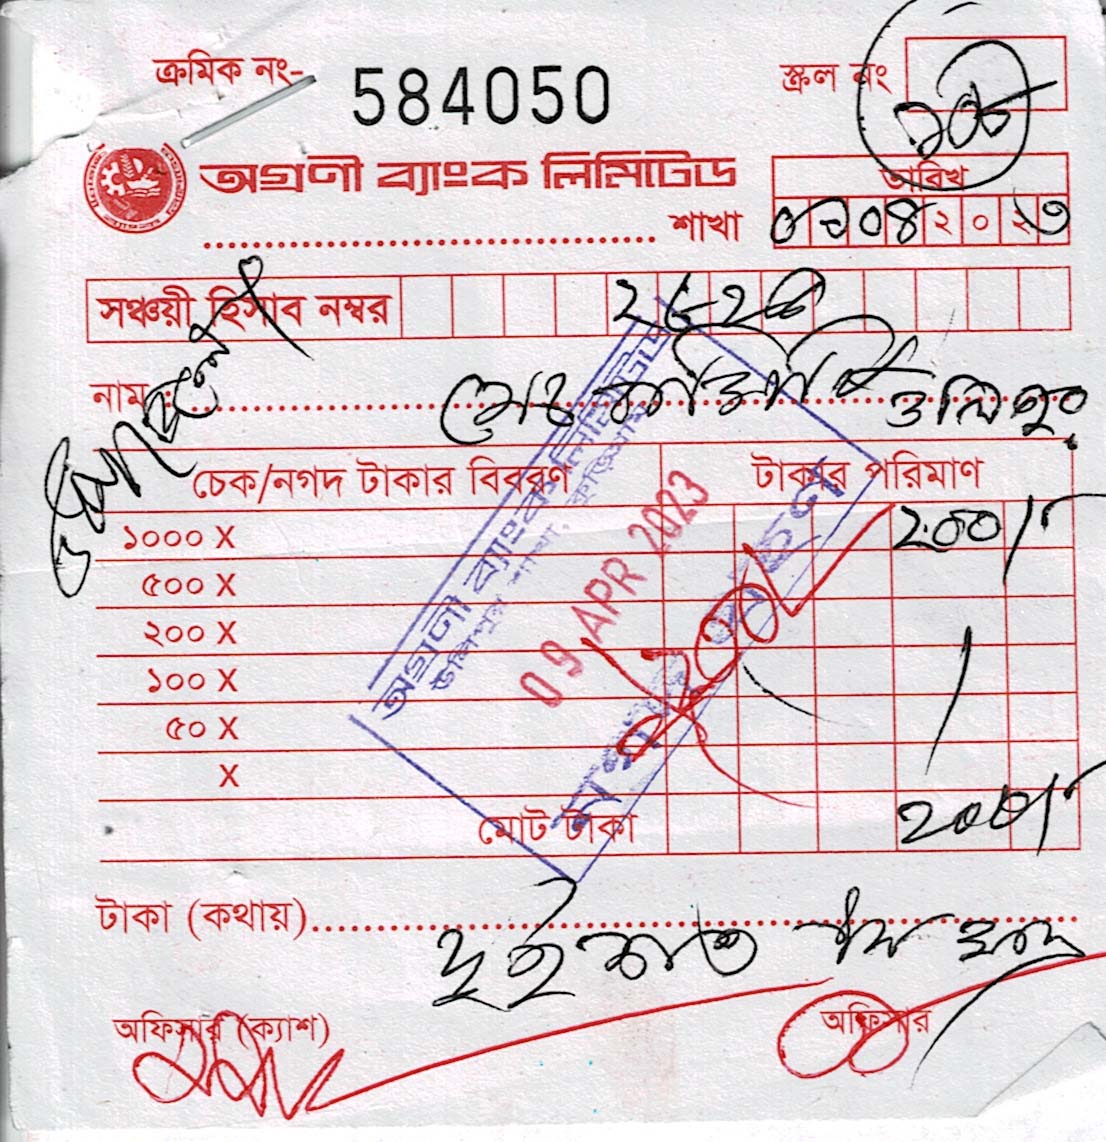 ক্রমিক নং- 584050 স্ক্রল নং
অগ্রণী ব্যাংক লিমিটেড
তারিখ
শাখা ০৯০৪২০২৩
সঞ্চয়ী হিসাব নম্বর
নাম : উলিপুর
চেক/নগদ টাকার বিবরণ টাকার পরিমাণ
১০০০ X ২০০/-
৫০০ X
২০০ X
১০০ X
৫০ X
X
মোট টাকা ২০০/-
অগ্রণী ব্যাংক লিমিটেড
উলিপুর শাখা, কুড়িগ্রাম
09 APR 2023
নগদ গ্রহণ
২০০/-
টাকা (কথায়) দুইশত মাত্র
অফিসার (ক্যাশ) অফিসার